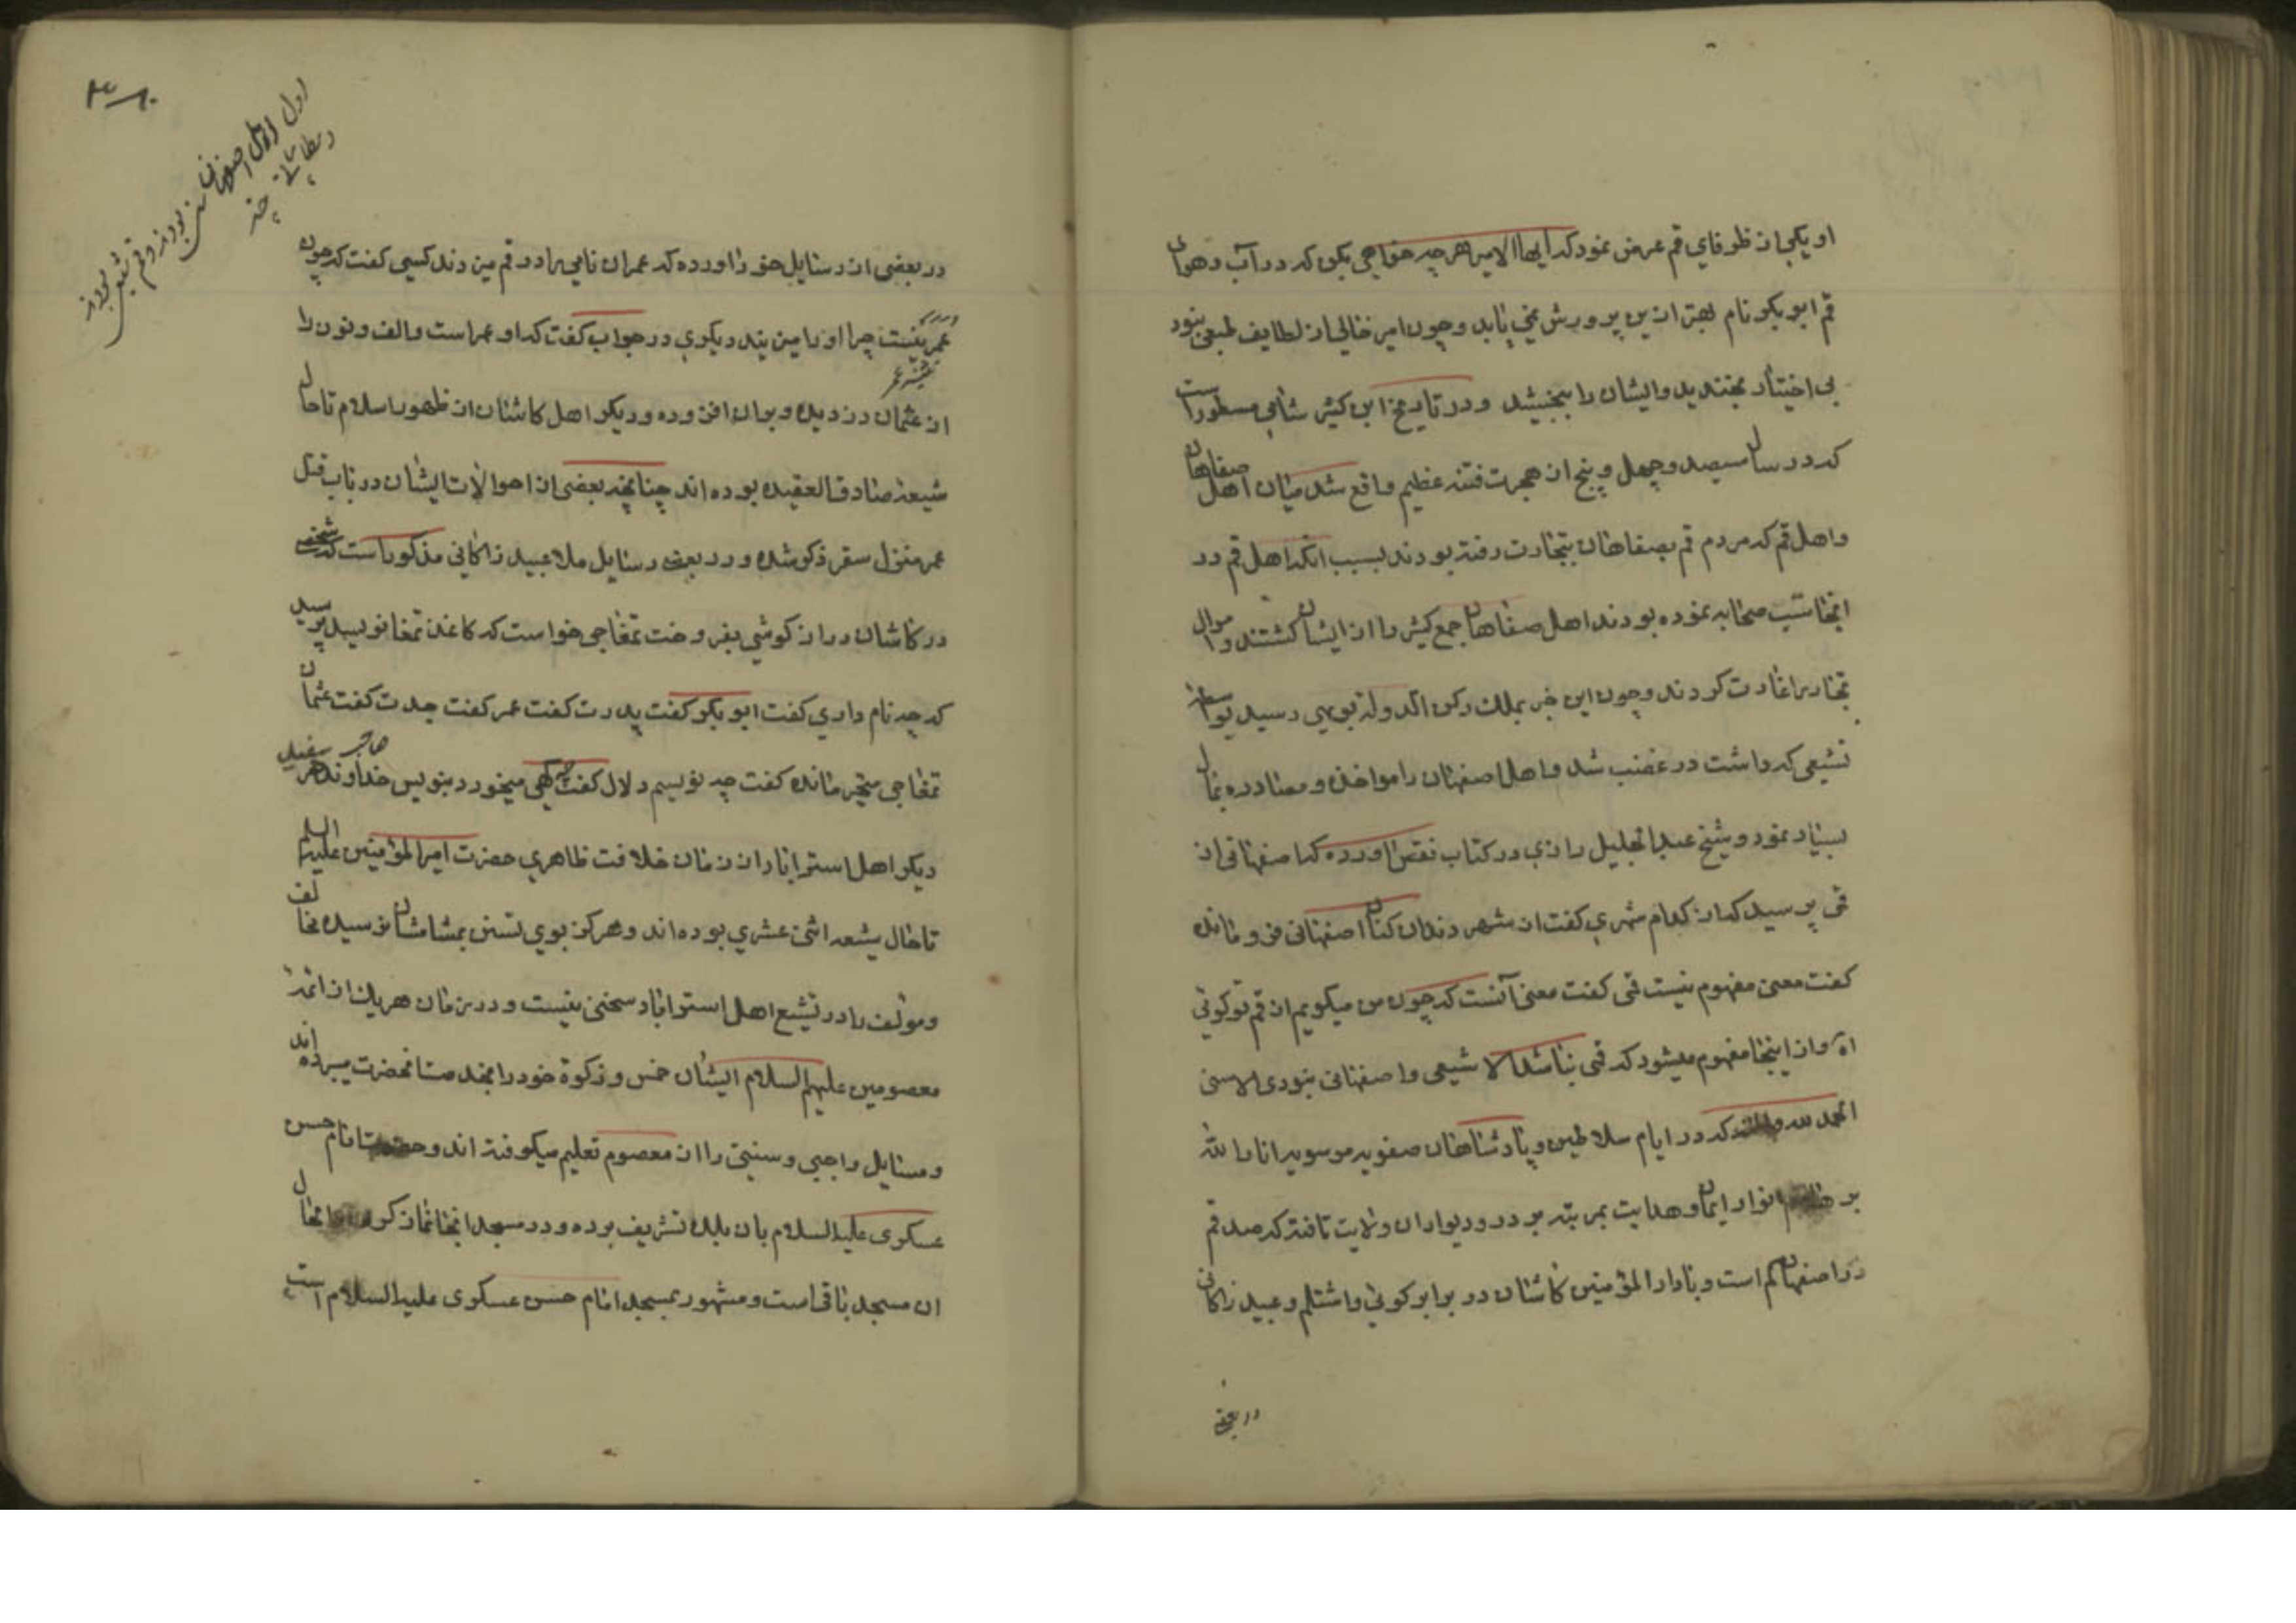 او یکی از ظرفای قم عرض نمود که ایها الامیر هر چه خواهی بکن که در آب و هوای
قم ابو بکر نام بهتر ازین پرورش نمی یابد و چون امیر خالی از لطایف طبعی نبود
بی اختیار بخندید و ایشان را ببخشید و در تاریخ ابن کثیر شامی مسطور است
که در سال سیصد و چهل و پنج از هجرت فتنه عظیم واقع شد میان اهل صفاهان
و اهل قم که مردم قم بصفاهان بتجارت رفته بودند بسبب انکه اهل قم در
انجا سب صحابه نموده بودند اهل صفاهان جمع کثیر را از ایشان کشتند و اموال
تجار را غارت کردند و چون این خبر بملک رکن الدوله بویهی رسید بواسطه
تشیعی که داشت در غضب شد و اهل اصفهان را مواخذه و مصادره بمال
بسیار نمود و شیخ عبد الجلیل رازی در کتاب نقض اورده که اصفهانی از
قمی پرسید که از کدام شهری گفت از شهر دندان کنان اصفهانی فرو مانده
گفت معنی مفهوم نیست قمی گفت معنی آنست که چون من میگویم از قم تو گوئی
اه و از اینجا مفهوم میشود که قمی نباشد الا شیعی و اصفهانی نبودی الا سنی
الحمد لله که در ایام سلاطین و پادشاهان صفویه موسویه انار الله
بر انوار ایمان و هدایت بمرتبه بر در و دیوار ان ولایت تافته که صد قم
در اصفهان کم است و با دار المؤمنین کاشان در برابر کوئی و اشتلم و عبید زاکانی
در بعضی
در بعضی از رسایل خود اورده که عمران نامی را در قم می زدند کسی گفت که چون
عمر نیست چرا او را میزنید دیگری در جواب گفت که او عمر است و الف و نون را
از عثمان دزدیده و بران افزوده و دیگر اهل کاشان از ظهور اسلام تا حال
شیعه صادق العقیده بوده اند چنانچه بعضی از احوالات ایشان در باب قتل
عمر منزل سقر ذکر شده و در بعضی رسایل ملا عبید زاکانی مذکور است که شخصی
در کاشان دراز گوشی بفروخت تمغاجی خواست که کاغذ تمغا نویسد پرسید
که چه نام داری گفت ابو بکر گفت پدرت گفت عمر گفت جدت گفت عثمان
تمغاجی متحیر مانده گفت چه نویسم دلال گفت میخورد بنویس خداوند خر
دیگر اهل استراباد از زمان خلافت ظاهری حضرت امیر المؤمنین علیه السلام
تا حال شیعه اثنی عشری بوده اند و هرگز بوی تسنن بمشامشان نرسیده مخالف
و مؤلف را در تشیع اهل استراباد سخنی نیست و در زمان هر یک از ائمه
معصومین علیهم السلام ایشان خمس و زکوة خود را بخدمت انحضرت میبرده اند
و مسایل واجبی و سنتی را از معصوم تعلیم میگرفته اند و حضرت امام حسن
عسکری علیه السلام بان بلده تشریف برده و در مسجد انجا نماز کرده
ان مسجد باقی است و مشهور بمسجد امام حسن عسکری علیه السلام است